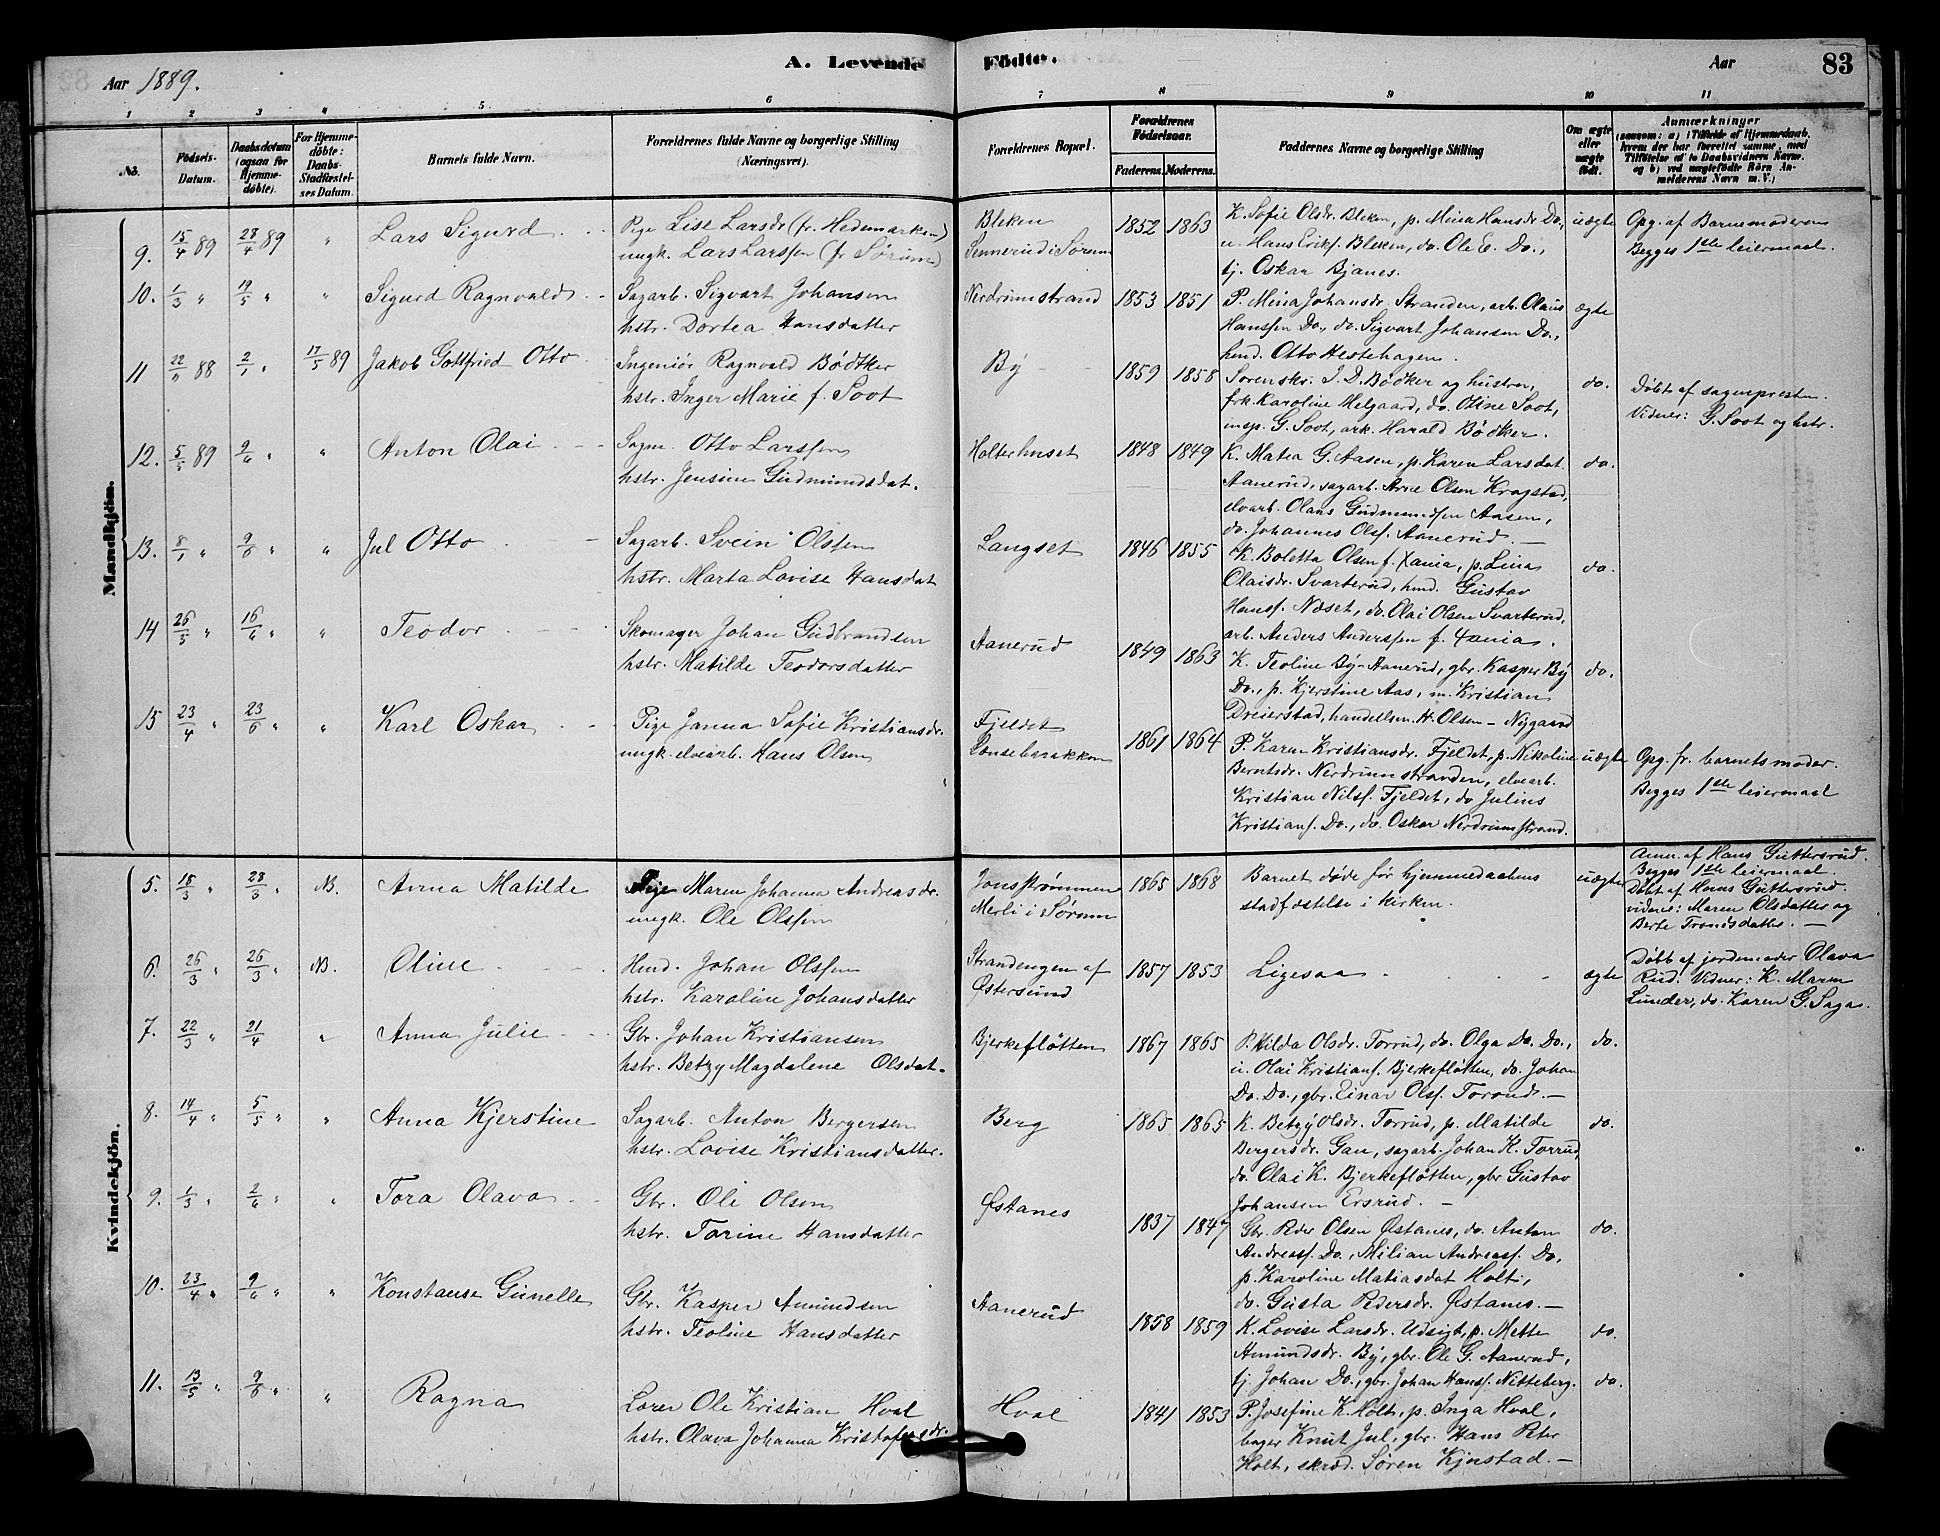 Aar 1889.
A. Levende Födte.
Aar
83
1 2 3 4 5 6 7 8 9 10 11
No.
Födsels-Datum.
Daabsdatum (ogsaa for Hjemme-döbte).
For Hjemme-döbte: Daabs-Stadfæstel-ses Datum.
Barnets fulde Navn.
Forældrenes fulde Navne og borgerlige Stilling (Næringsvei).
Forældrenes Bopæl.
Forældrenes Födselsaar.
Faderens. Moderens.
Faddernes Navne og borgerlige Stilling
Om ægte eller uægte födt.
Anmærkninger
(saasom: a) i Tilfælde af Hjemmedaab, hvem der har forrettet samme, med Tilföielse af to Daabsvidners Navne, og b) ved uægtefödte Börn An-melderens Navn m. V.)
Mandkjön.
9. 15/4 89 28/4 89 " Lars Sigurd
Pige Lise Larsdr (fr. Hedemarken)
ungk. Lars Larssen (fr Sørum)
Bleken
Sennerud i Sørum
1852 1863
K. Sofie Olsdr. Bleken, p. Mina Hansdr. Do,
u. Hans Eriks. Bleken, do. Ole E. Do.,
tj. Oskar Bjanes.
uægte
Opg. af Barnemoderen
Begges 1ste leiermaal.
10. 1/3 " 19/5 " " Sigurd Ragnvald
Sagarb. Sigvart Johansen
hstr. Dortea Hansdatter
Nerdrumstrand
1853 1851
P. Mina Johansdr. Stranden, arb. Olaus
Hanssen Do., do. Sigvart Johansen Do.,
hmd. Otto Hestehagen.
ægte
11 22/11 88 2/1 " 17/5 89 Jakob Gottfried Otto
Ingeniør Ragnvald Bödtker
hstr. Inger Marie f. Soot
By
1859 1858
Sorenskr. J. D. Bödker og hustru,
frk. Karoline Melgaard, do. Otine Soot,
insp. G. Soot, ark. Harald Bödker.
do.
Døbt af sognepresten.
Vidner: G. Soot og hstr.
12. 5/5 89 2/6 " " Anton Olai
Sagm. Otto Larssen
hstr. Jensine Gudmundsdat.
Holterhuset
1848 1849
K. Matea G. Aasen, p. Karen Larsdat.
Aanerud, sagarb. Arne Olsen Krogstad,
elvarb. Olaus Gudmundsen Aasen,
do. Johannes Olss. Aanerud.
do.
13. 8/1 " 9/6 " " Jul Otto
Sagarb. Svein Olssen
hstr. Marta Lovise Hansdat
Langset
1846 1855
K. Boletta Olsen f. Xania, p. Lina
Olaisdr. Svarterud, hmd. Gustav
Hanss. Næset, do. Olai Olsen Svarterud,
arb. Anders Anderssen f. Xania.
do.
14 26/5 " 16/6 " " Teodor
Skomager Johan Gudbrandsen
hstr. Matilde Teodorsdatter
Aanerud
1849 1863
K. Teoline By-Aanerud, gbr. Kasper By
Do., p. Kjerstine Aas, m. Kristian
Dreierstad, handelsm. H. Olsen - Nygaard
do.
15 23/4 " 23/6 " " Karl Oskar
Pige Janna Sofie Kristiansdr.
ungk. elvearb. Hans Olsen
Fjeldet
Lænsebarakken
1861 1864
P. Karen Kristiansdr. Fjeldet, p. Nikoline
Berntsdr. Nerdrumstranden, elvearb.
Kristian Nilss. Fjeldet, do Julius
Kristians. Do., do. Oskar Nerdrumstrand.
uægte
Opg. fr. barnets moder.
Begges 1ste leiermaal
Kvindekjön.
5. 18/3 " 23/3 " N. Anna Matilde
Pige Maren Johanna Andreasdr.
ungk. Ole Olssen
Jonsstrømmen
Merli i Sørum
1865 1868
Barnet døde før hjemmedaabens
stadfæstelse i kirken.
uægte
Anm. af Hans Guttersrud.
Begges 1ste leiermaal.
Døbt af Hans Guttersrud.
vidner: Maren Olsdatter og
Berte Trondsdatter.
6. 26/3 " 26/3 " N. Oline
Hmd. Johan Olssen
hstr. Karoline Johansdatter
Strandengen af
Østersund
1857 1853
Ligesaa
ægte
Døbt af jordemoder Olava
Rud. Vidner: K. Maren
Lunder, do. Karen G. Saga.
7. 22/3 " 21/4 " Anna Julie
Gbr. Johan Kristiansen
hstr. Betzy Magdalene Olsdat.
Bjerkefløtten
1867 1865
P. Hilda Olsdr. Torrud, do. Olga Do. Do.,
u. Olai Kristians. Bjerkefløtten, do. Johan
Do. Do., gbr. Einar Olss. Torrud.
do.
8. 14/4 " 5/5 " " Anna Kjerstine
Sagarb. Anton Bergersen
hstr. Lovise Kristiansdatter.
Berg
1865 1865
K. Betzy Olsdr. Torrud, p. Matilde
Bergersdr. Gan, sagarb. Johan K. Torrud,
do. Olai K. Bjerkefløtten, gbr Gustav
Johansen Ersrud.
do.
9. 1/3 " 2/6 " " Tora Olava
Gbr. Oli Olsen
hstr. Torine Hansdatter
Østanes
1837 1847
Gbr. Peder Olsen Østanes, do. Anton
Andreass. Do., Milian Andreass. Do,
p. Karoline Matiasdat Holt,
do. Gusta Pedersdr. Østanes.
do.
10. 23/4 " 9/6 " " Konstanse Gunelle
Gbr. Kasper Amundsen
hstr. Teoline Hansdatter
Aanerud
1858 1859
K. Lovise Larsdr. Udsigt, p. Mette
Amundsdr. By, gbr. Ole G. Aanerud,
tj. Johan Do., gbr. Johan Hanss. Nitteberg.
do.
11. 13/5 " 9/6 " " Ragna
Lærer Ole Kristian Hval
hstr. Olava Johanna Kristofersdr.
Hval
1841 1853
P. Josefine K. Holt, p. Inga Hval,
bager Knut Jul, gbr. Hans Peter
Holt, skræd. Søren Kjnstad.
do.